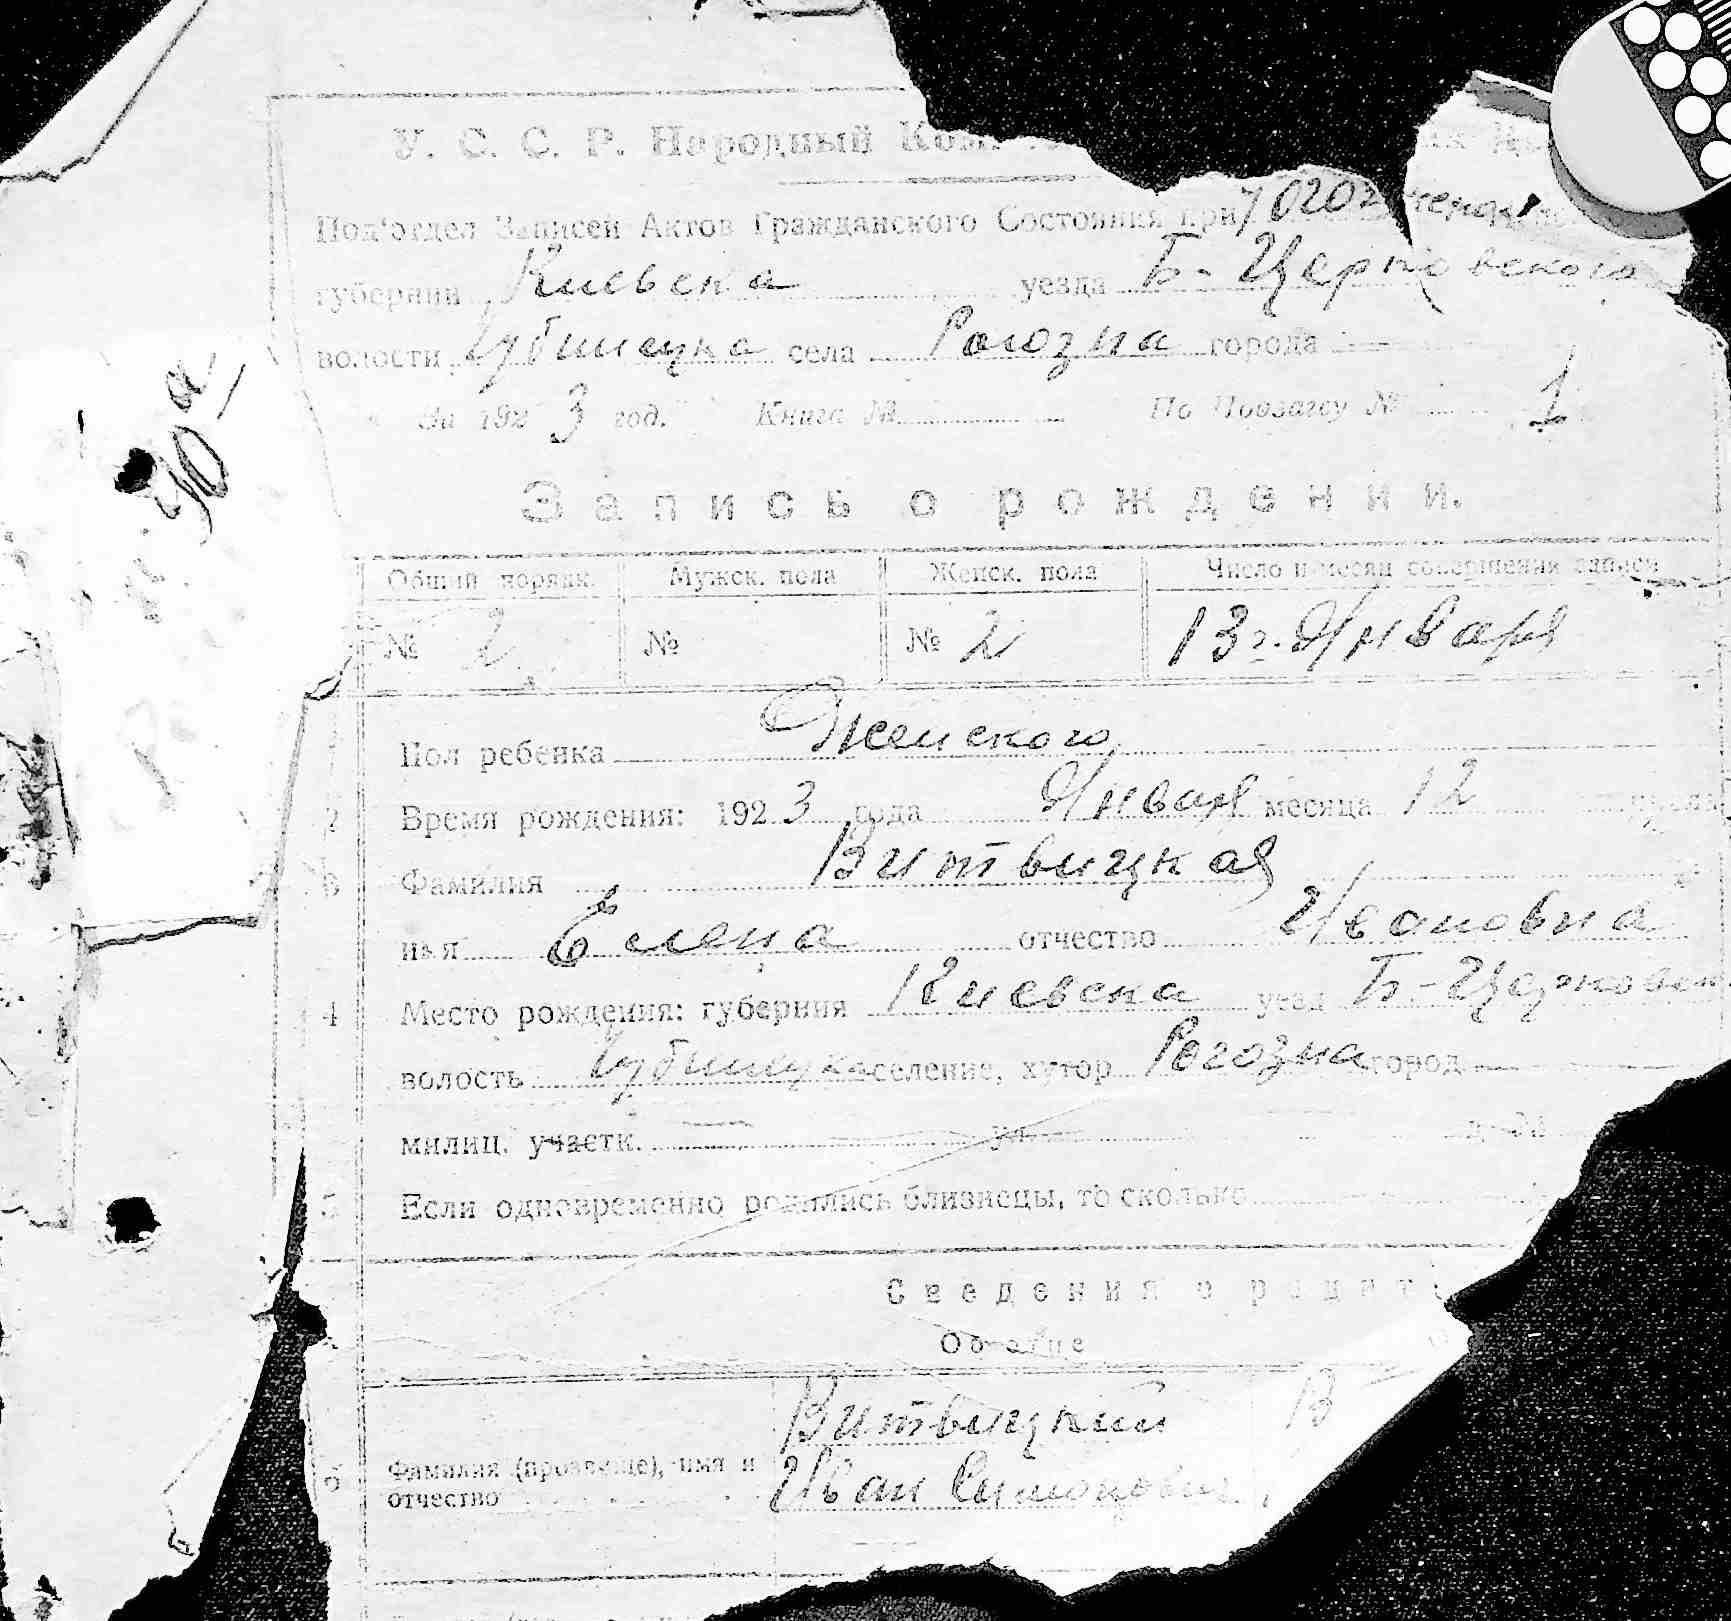 У. С. С. Р. Народный
Под'отдел Записей Актов Гражданского Состояния при
губернии Киевска уезда Б-Церковского
волости села Рогозна города
За 1923 год. Книга № По Повзагсу № 1
Запись о рождении.
Общий порядк. Мужск. пола Женск. пола Число и месяц совершения записи
№ 2 № № 2 13го Января
1 Пол ребенка Женского
2 Время рождения: 1923 года Января месяца 12 числа
3 Фамилия Витвицкая
имя Елена отчество Ивановна
4 Место рождения: губерния Киевска уезд Б-Церковск
волость селение, хутор Рогозна город
милиц. участк. ул. д. №
5 Если одновременно родились близнецы, то сколько
Сведения о родит
Об отце
Витвицкий В
6 Фамилия (прозвище), имя и
отчество Иван Симонович